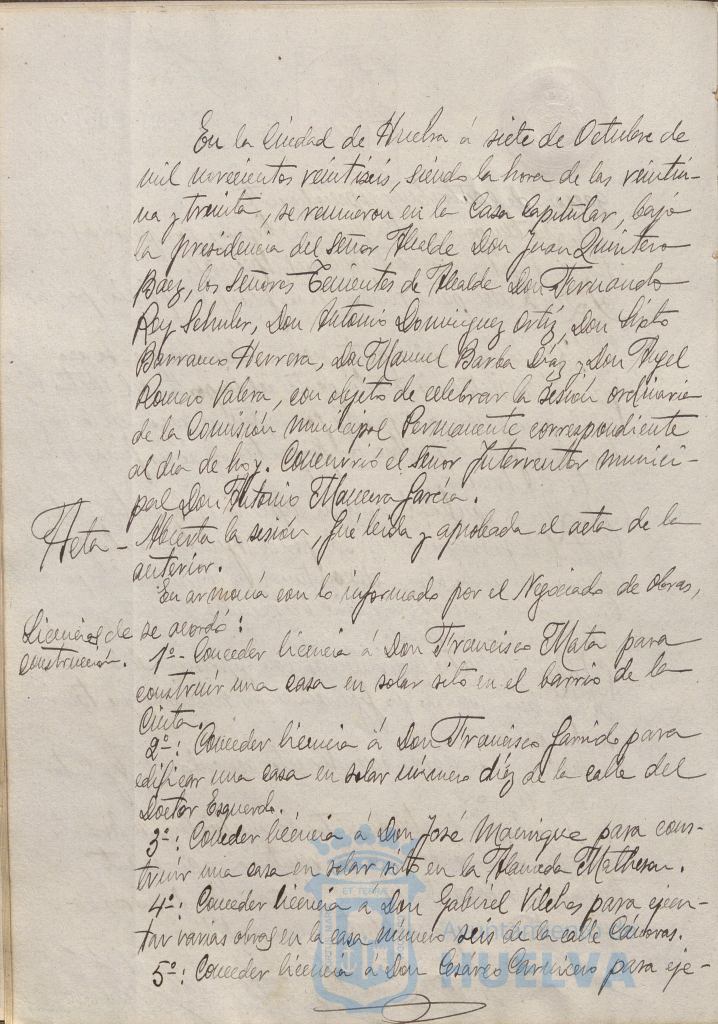 En la Ciudad de Huelva á siete de Octubre de
mil novecientos veintiseis, siendo la hora de las veintiu-
na y treinta, se reunieron en la Casa Capitular, bajo
la presidencia del Señor Alcalde Don Juan Quintero
Baez, los Señores Tenientes de Alcalde Don Fernando
Rey Schuler, Don Antonio Dominguez Ortiz, Don Sixto
Barranco Herrera, Don Manuel Barba Diaz y Don Angel
Romero Valera, con objeto de celebrar la sesión ordinaria
de la Comisión Municipal Permanente correspondiente
al día de hoy. Concurrió el Señor Interventor munici-
pal Don Antonio Garcia.
Acta - Abierta la sesión, fué leida y aprobada el acta de la
anterior.
En armonía con lo informado por el Negociado de obras,
Licencias de se acordó:
construcción. 1º- Conceder licencia á Don Francisco Mata para
construir una casa en solar sito en el barrio de la
Cinta.
2º: Conceder licencia á Don Francisco Garrido para
edificar una casa en solar número diez de la calle del
Doctor Esquerdo.
3º: Conceder licencia á Don José Manrique para cons-
truir una casa en solar sito en la Alameda Matheson.
4º: Conceder licencia á Don Gabriel Vilches para ejecu-
tar varias obras en la casa número seis de la calle Cánovas.
5º: Conceder licencia á Don Cesareo Carnicero para eje-
ET TERRAE
Ayuntamiento de
HUELVA